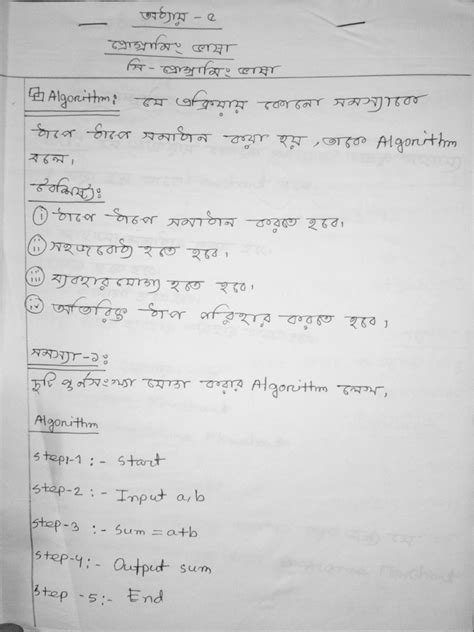 অধ্যায় - ৫
প্রোগ্রামিং ভাষা
সি - প্রোগ্রামিং ভাষা
Algorithm: যে প্রক্রিয়ায় কোনো সমস্যাকে
ধাপে ধাপে সমাধান করা হয়, তাকে Algorithm
বলে।
বৈশিষ্ট্য:
i ধাপে ধাপে সমাধান করতে হবে।
ii সহজবোধ্য হতে হবে।
iii ব্যবহার যোগ্য হতে হবে।
iv অতিরিক্ত ধাপ পরিহার করতে হবে।
সমস্যা -১:
দুটি পূর্নসংখ্যা যোগ করার Algorithm লেখ।
Algorithm
Step-1 :- Start
Step-2 :- Input a,b
Step-3 :- Sum = a+b
Step-4 :- Output sum
Step -5 :- End